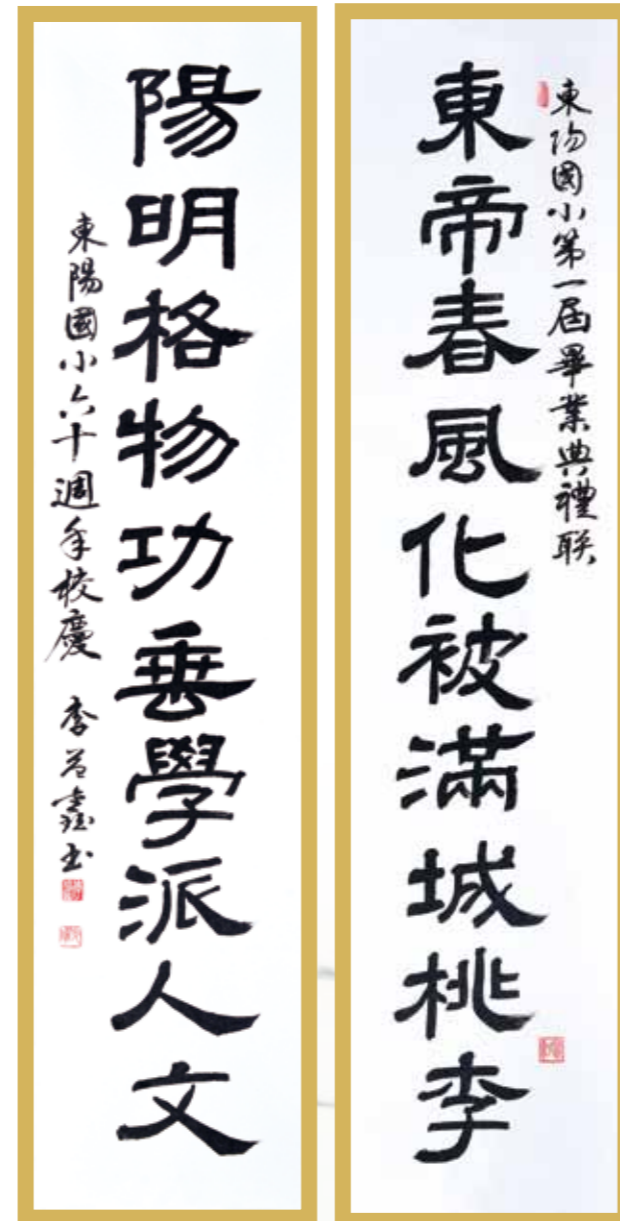 東陽國小第一屆畢業典禮联
東帝春風化被滿城桃李
陽明格物功垂學派人文
東陽國小六十週年校慶 李益鑫书